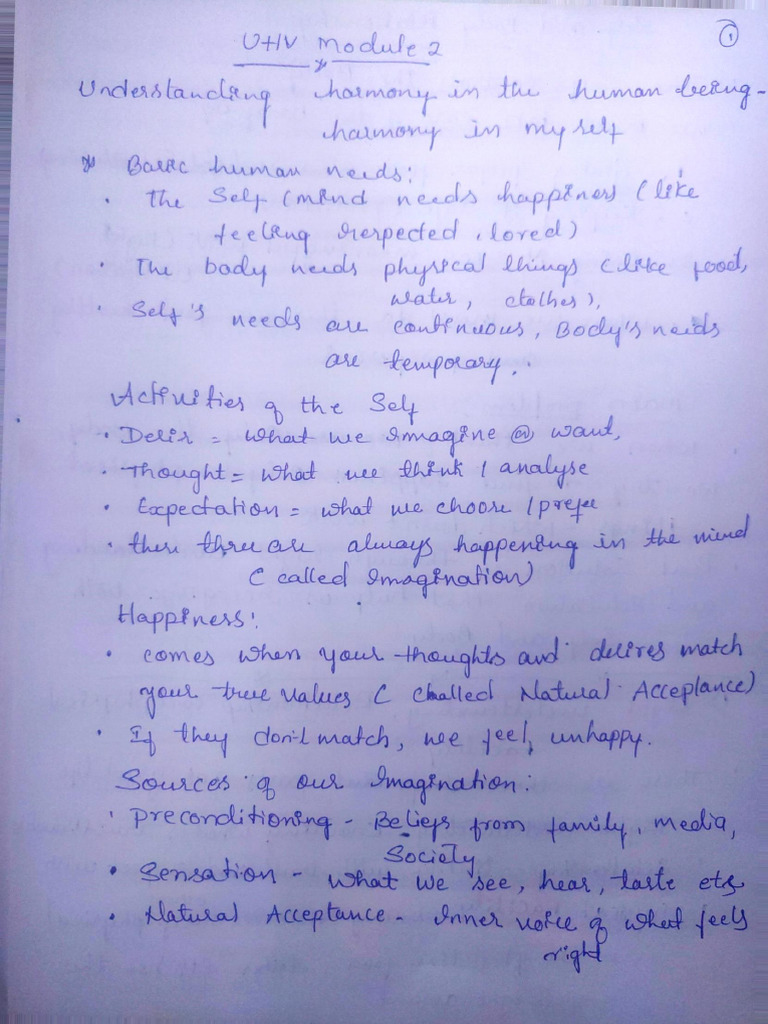 ①
UHV Module 2
Understanding harmony in the human being -
harmony in myself
* Basic human needs:
• The Self (mind needs happiness (like
feeling respected, loved)
• The body needs physical things (like food,
water, clothes),
• Self's needs are continuous, Body's needs
are temporary.
Activities of the Self
• Desir = what we imagine or want,
• Thought = what we think / analyse
• Expectation = what we choose / prefer
• these three are always happening in the mind
( called Imagination)
Happiness:
• comes when your thoughts and desires match
your true values ( called Natural Acceptance)
• If they don't match, we feel unhappy.
Sources of our Imagination:
• Preconditioning - Beliefs from family, media,
Society
• Sensation - what we see, hear, taste etc
• Natural Acceptance - inner voice of what feels
right